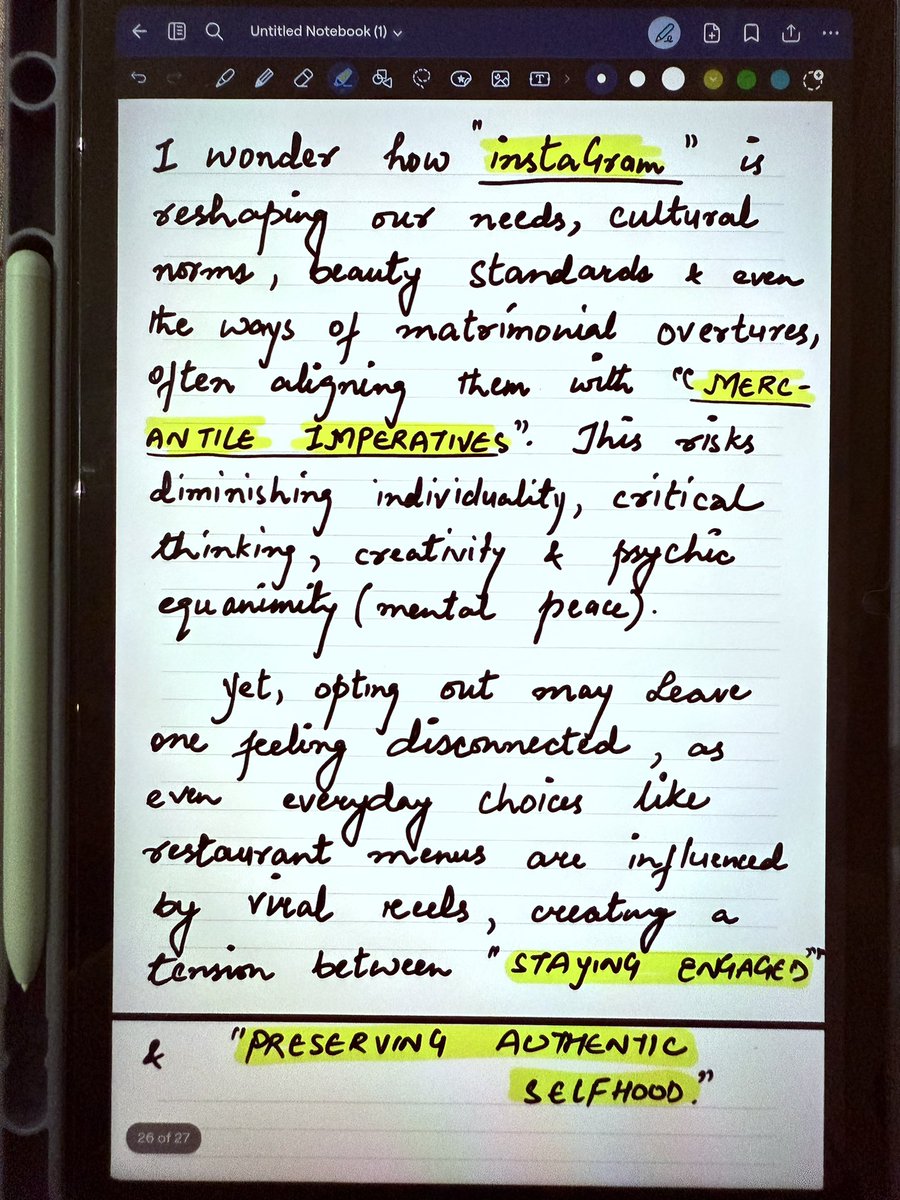 Untitled Notebook (1)
I wonder how "instaGram" is
reshaping our needs, cultural
norms, beauty standards & even
the ways of matrimonial overtures,
often aligning them with "MERC-
ANTILE IMPERATIVES". This risks
diminishing individuality, critical
thinking, creativity & psychic
equanimity (mental peace).
Yet, opting out may leave
one feeling disconnected, as
even everyday choices like
restaurant menus are influenced
by viral reels, creating a
tension between "STAYING ENGAGED"
& "PRESERVING AUTHENTIC
SELFHOOD."
26 of 27